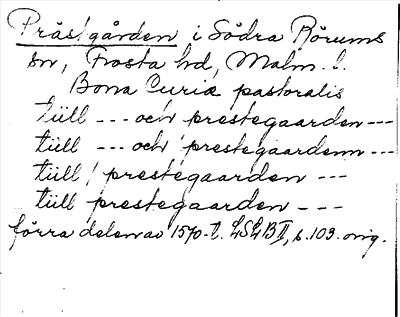 Prästgården i Södra Rörums
sn, Frosta hd, Malm. l.
Bona Curiæ pastoralis
tiill --- och prestegaarden ---
tiill --- och prestegaardenn ---
tiill prestegaarden ---
tiill prestegaarden ---
förra delen av 1570-t. LSLB II, s. 103. orig.